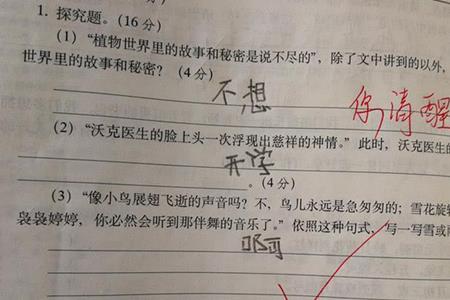 1. 探究题。(16分)
(1)“植物世界里的故事和秘密是说不尽的”，除了文中讲到的以外，
世界里的故事和秘密？(4分)
不想
你清醒
(2)“沃克医生的脸上头一次浮现出慈祥的神情。”此时，沃克医生的
开学
。(4分)
(3)“像小鸟展翅飞逝的声音吗？不，鸟儿永远是急匆匆的；雪花旋转
袅袅婷婷，你必然会听到那伴舞的音乐了。”依照这种句式，写一写雪或雨